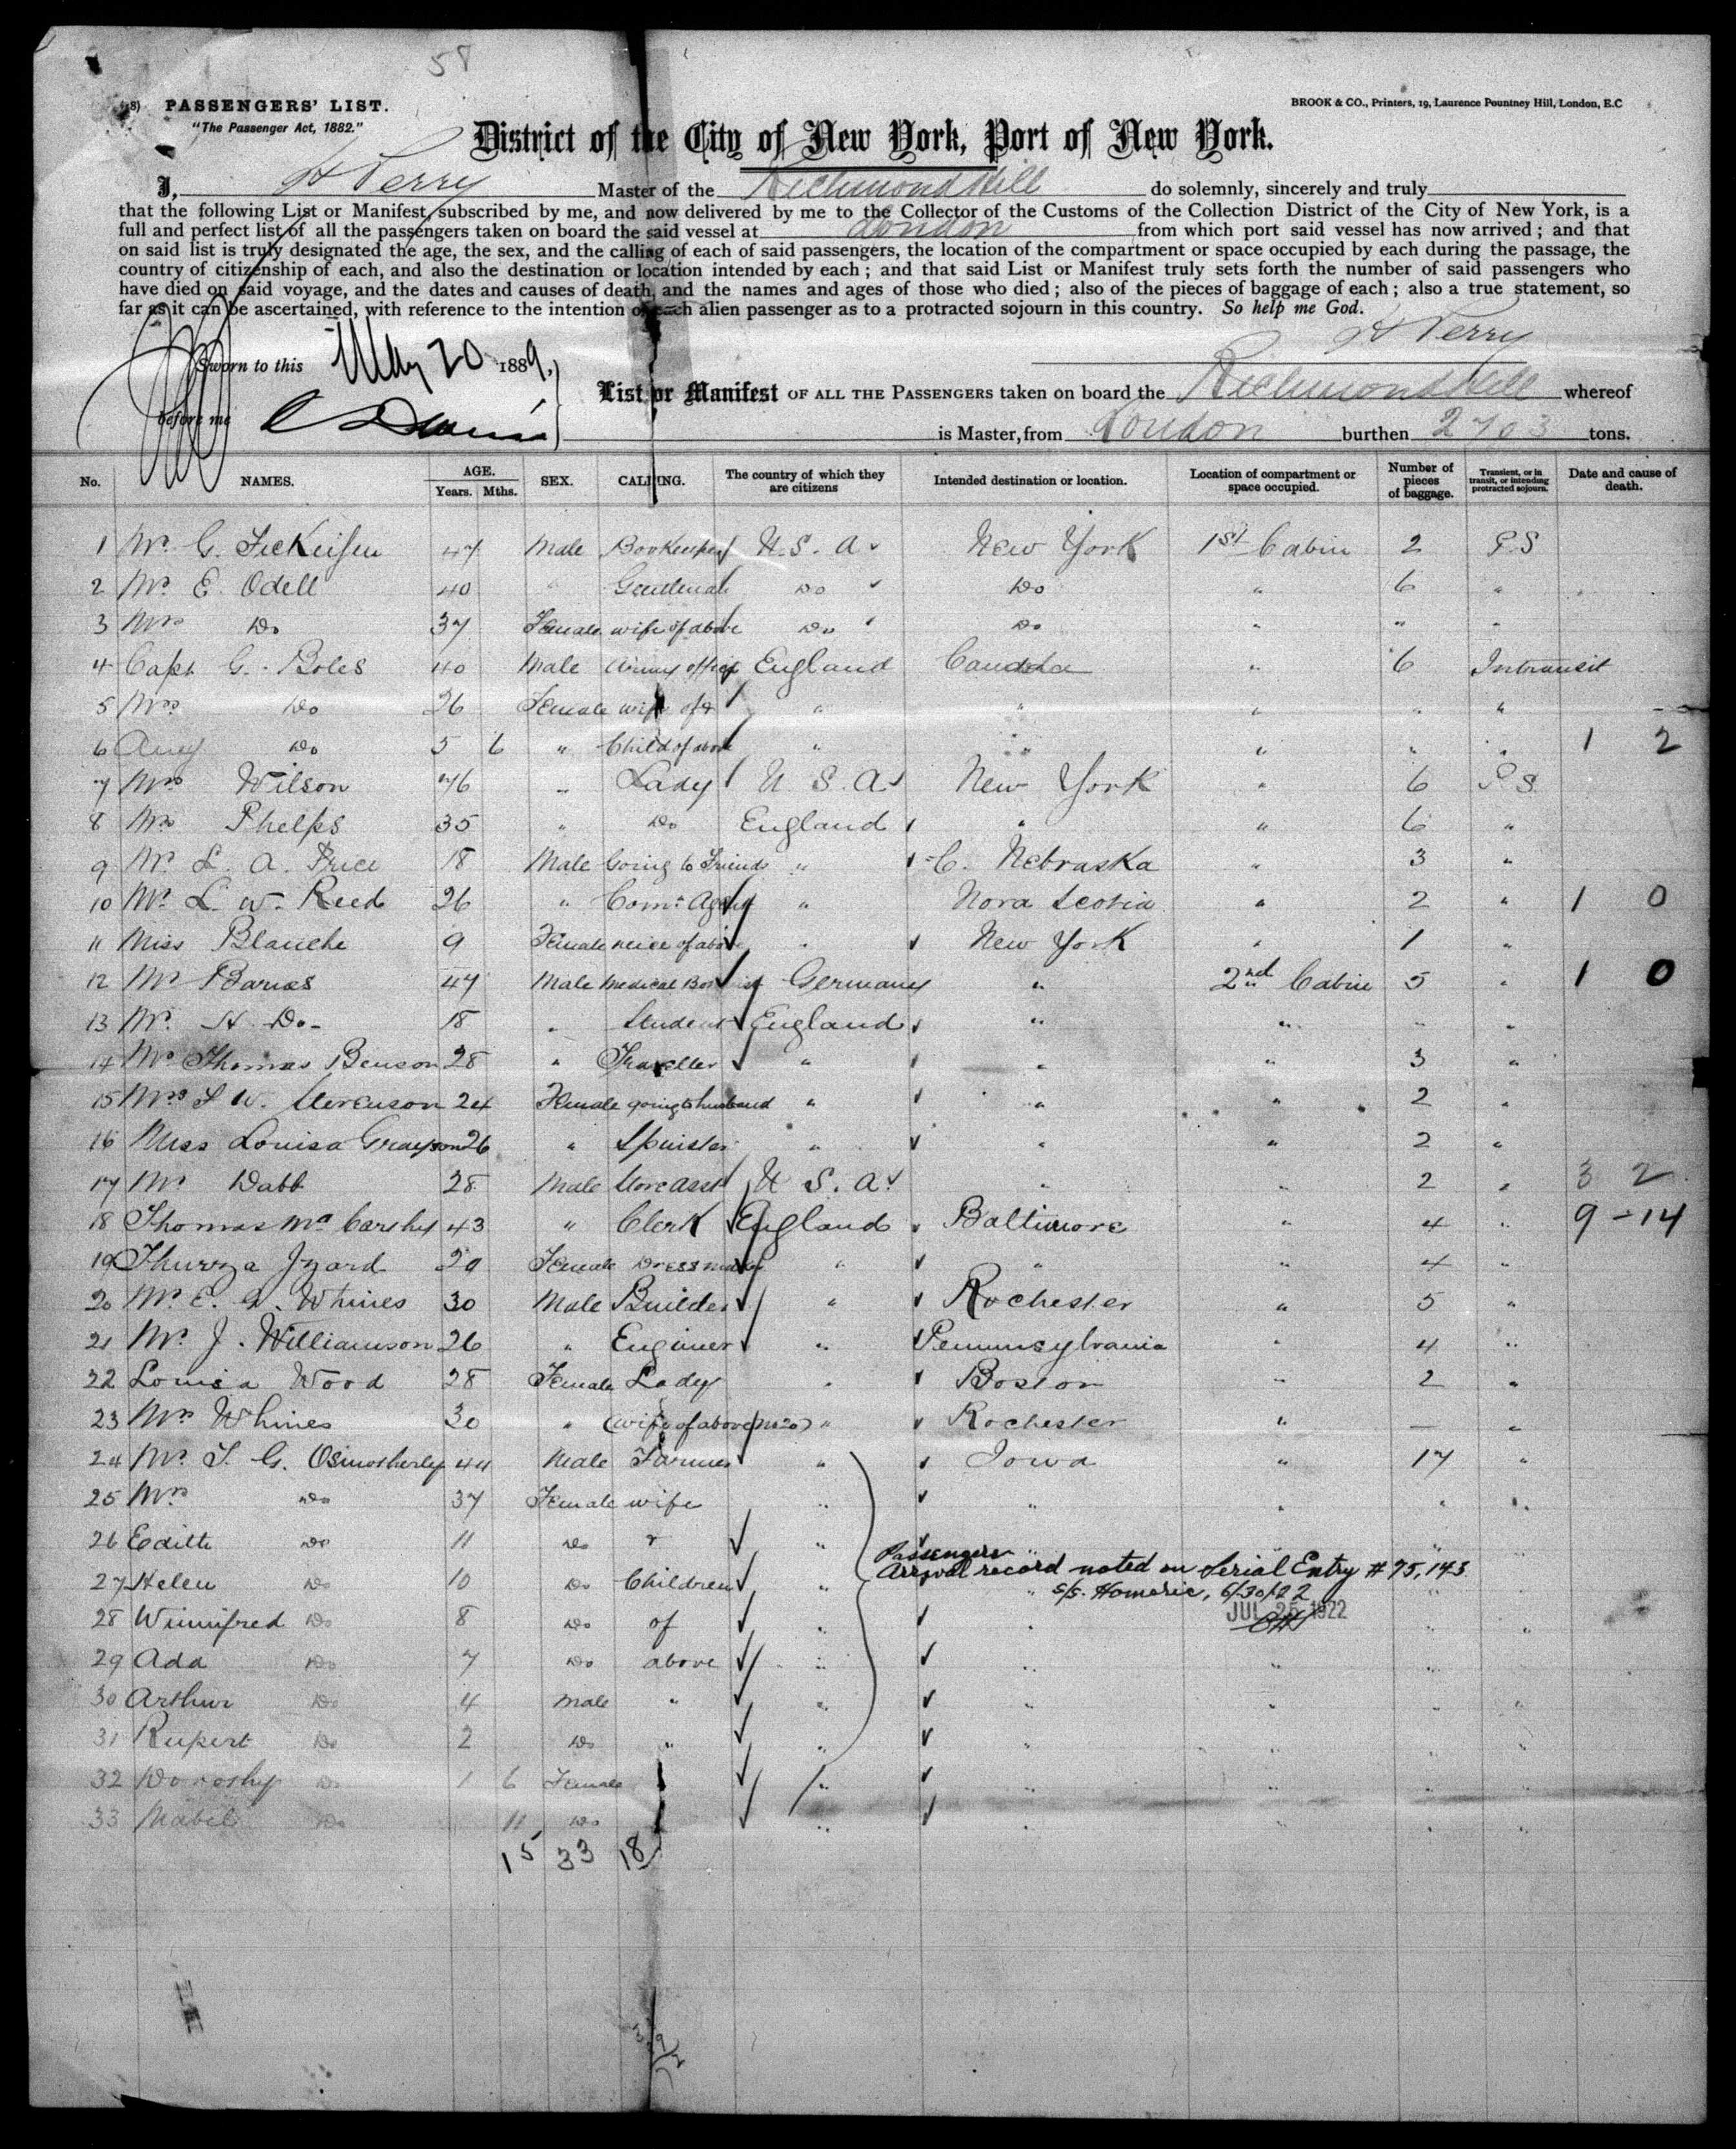 58
PASSENGERS' LIST.
"The Passenger Act, 1882."
BROOK & CO., Printers, 19, Laurence Pountney Hill, London, E.C
District of the City of New York, Port of New York.
I, H Perry Master of the Richmond Hill do solemnly, sincerely and truly
that the following List or Manifest, subscribed by me, and now delivered by me to the Collector of the Customs of the Collection District of the City of New York, is a
full and perfect list of all the passengers taken on board the said vessel at London from which port said vessel has now arrived; and that
on said list is truly designated the age, the sex, and the calling of each of said passengers, the location of the compartment or space occupied by each during the passage, the
country of citizenship of each, and also the destination or location intended by each; and that said List or Manifest truly sets forth the number of said passengers who
have died on said voyage, and the dates and causes of death, and the names and ages of those who died; also of the pieces of baggage of each; also a true statement, so
far as it can be ascertained, with reference to the intention of each alien passenger as to a protracted sojourn in this country. So help me God.
H Perry
Sworn to this May 20 1889,
before me
List or Manifest OF ALL THE PASSENGERS taken on board the Richmond Hill whereof
is Master, from London burthen 2703 tons.
No. NAMES. AGE. Years. Mths. SEX. CALLING. The country of which they are citizens Intended destination or location. Location of compartment or space occupied. Number of pieces of baggage. Transient, or in transit, or intending protracted sojourn. Date and cause of death.
1 Mr. G. 47 Male Bookeeper U.S.A. New York 1st Cabin 2 P.S
2 Mr. E. Odell 40 " Gentleman Do Do " 6 "
3 Mrs Do 37 Female wife of above Do Do " " "
4 Capt G. Boles 40 Male Army officer England Canada " 6 Intransit
5 Mrs Do 26 Female wife of " " " " "
6 Do 5 6 " Child of above " " " " " 1 2
7 Mrs Wilson 46 " Lady U.S.A New York " 6 P.S.
8 Mrs Phelps 35 " Do England " " 6 "
9 Mr. L. A. Price 18 Male Going to Friends " Nebraska " 3 "
10 Mr. L. W. Reed 26 " Comt Agent " Nova Scotia " 2 " 1 0
11 Miss Blanche 9 Female neice of above " New York " 1 "
12 Mr Barnes 47 Male Medical Germany " 2nd Cabin 5 " 1 0
13 Mr. H. Do 18 " Student England " " " "
14 Mr Thomas Benson 28 " Traveller " " " 3 "
15 Mrs S W. Stevenson 24 Female going to husband " " " 2 "
16 Miss Louisa Grayson 26 " Spinster " " " 2 "
17 Mr Dabb 28 Male Store asst U.S.A. " " 2 " 3 2
18 Thomas McCarthy 43 " Clerk England Baltimore " 4 " 9-14
19 Thurza Izard 20 Female Dressmaker " " " 4 "
20 Mr. E. G. Whines 30 Male Builder " Rochester " 5 "
21 Mr. J. Williamson 26 " Enginer " Pennnsylvania " 4 "
22 Louisa Wood 28 Female Lady " Boston " 2 "
23 Mrs Whines 30 " (wife of above No 20) " Rochester " — "
24 Mr. T. G. Osmotherly 44 Male Farmer " Iowa " 17 "
25 Mrs Do 37 Female wife " " " " "
26 Edith Do 11 Do " " " "
Passengers
Arrival record noted on Serial Entry # 75,143
27 Helen Do 10 Do Children " " "
S/S. Homeric, 6/30/22
JUL 25 1922
28 Winnifred Do 8 Do of " " " "
29 Ada Do 7 Do above " " " " "
30 Arthur Do 4 Male " " " " " "
31 Rupert Do 2 Do " " " " " "
32 Dorothy Do 1 6 Female " " " " "
33 Mabel Do 11 Do " " " " "
15 33 18